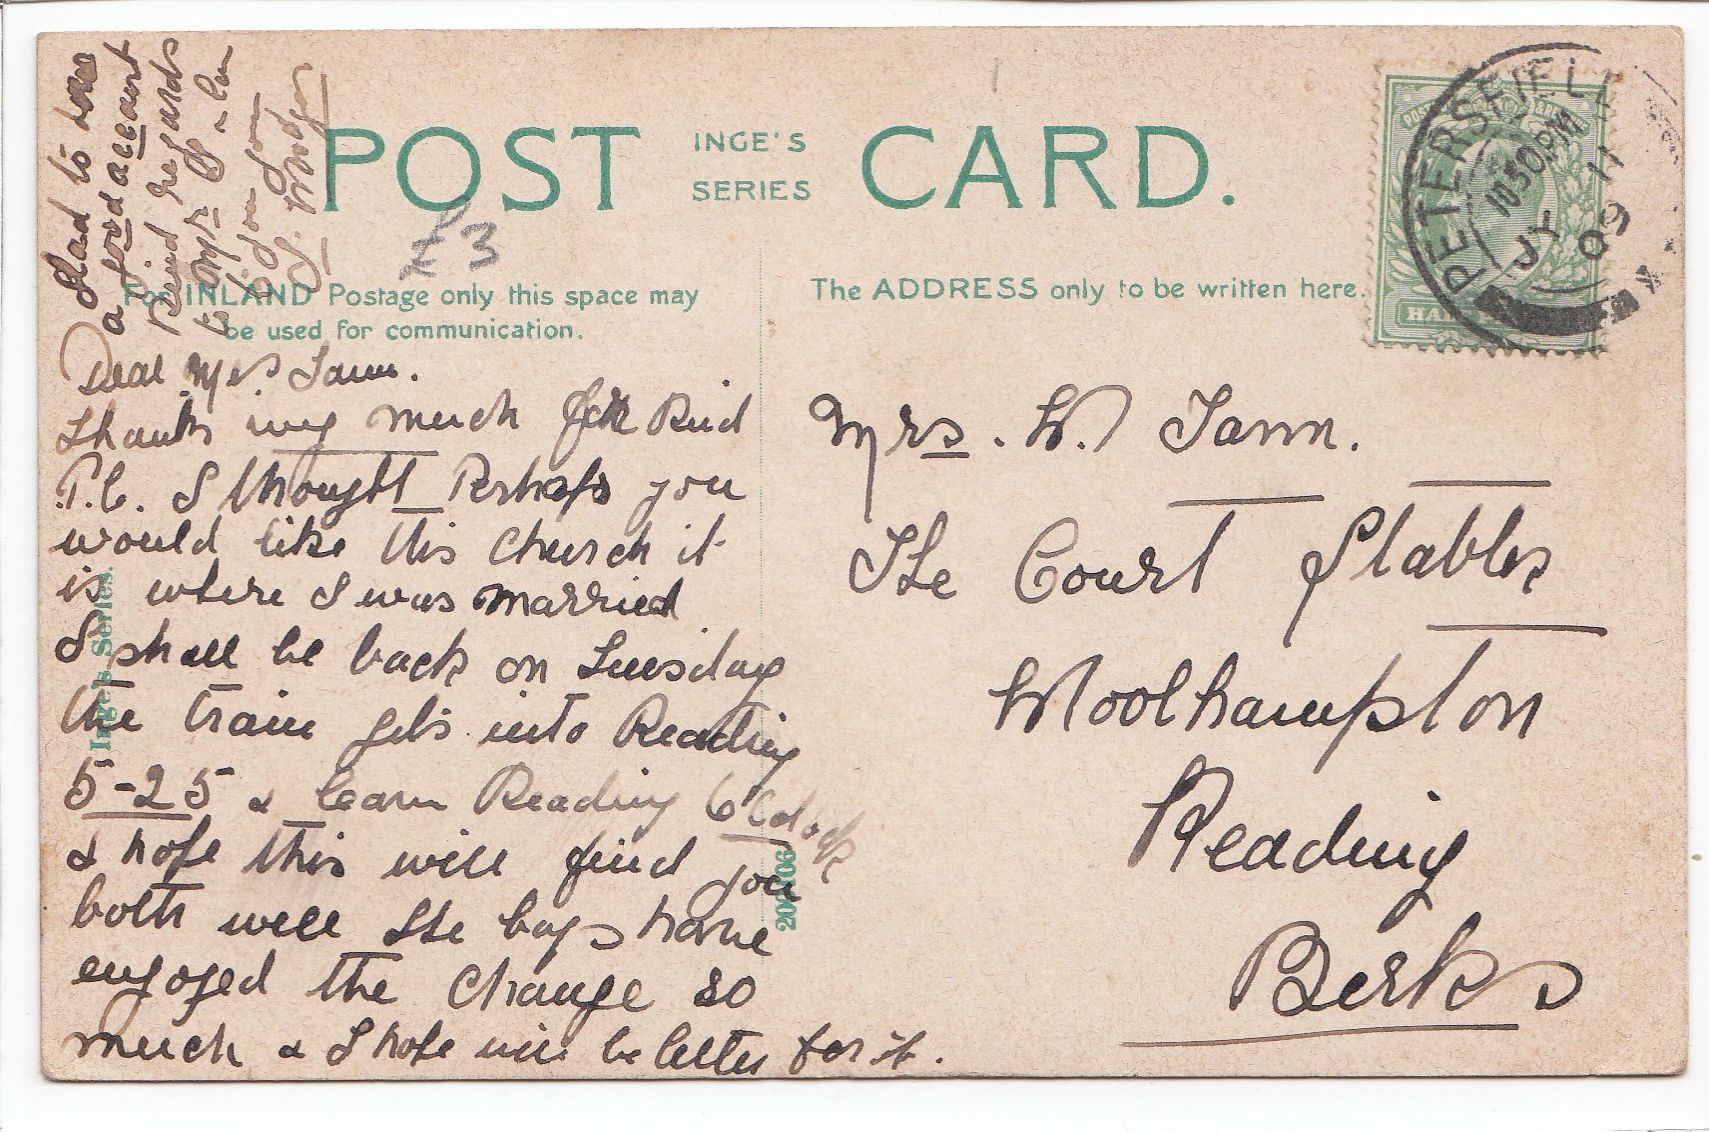 POST INGE'S SERIES CARD.
£3
For INLAND Postage only this space may
be used for communication.
The ADDRESS only to be written here.
PETERSFIELD
10 30 PM
JY 11
09
Dear Mrs Tann.
Thanks very much for kind
P.C. I thought Perhaps you
would like this Church it
is where I was married
I shall be back on Tuesday
the train gets into Reading
5-25 & leave Reading 6 O'clock
& hope this will find you
both well The boys have
engoyed the change so
much & I hope will be better for it.
Glad to
a good account
Kind regards
to Mr
from
Mrs. W. Tann.
The Court Stables
Woolhampton
Reading
Berks
Inge's Series.